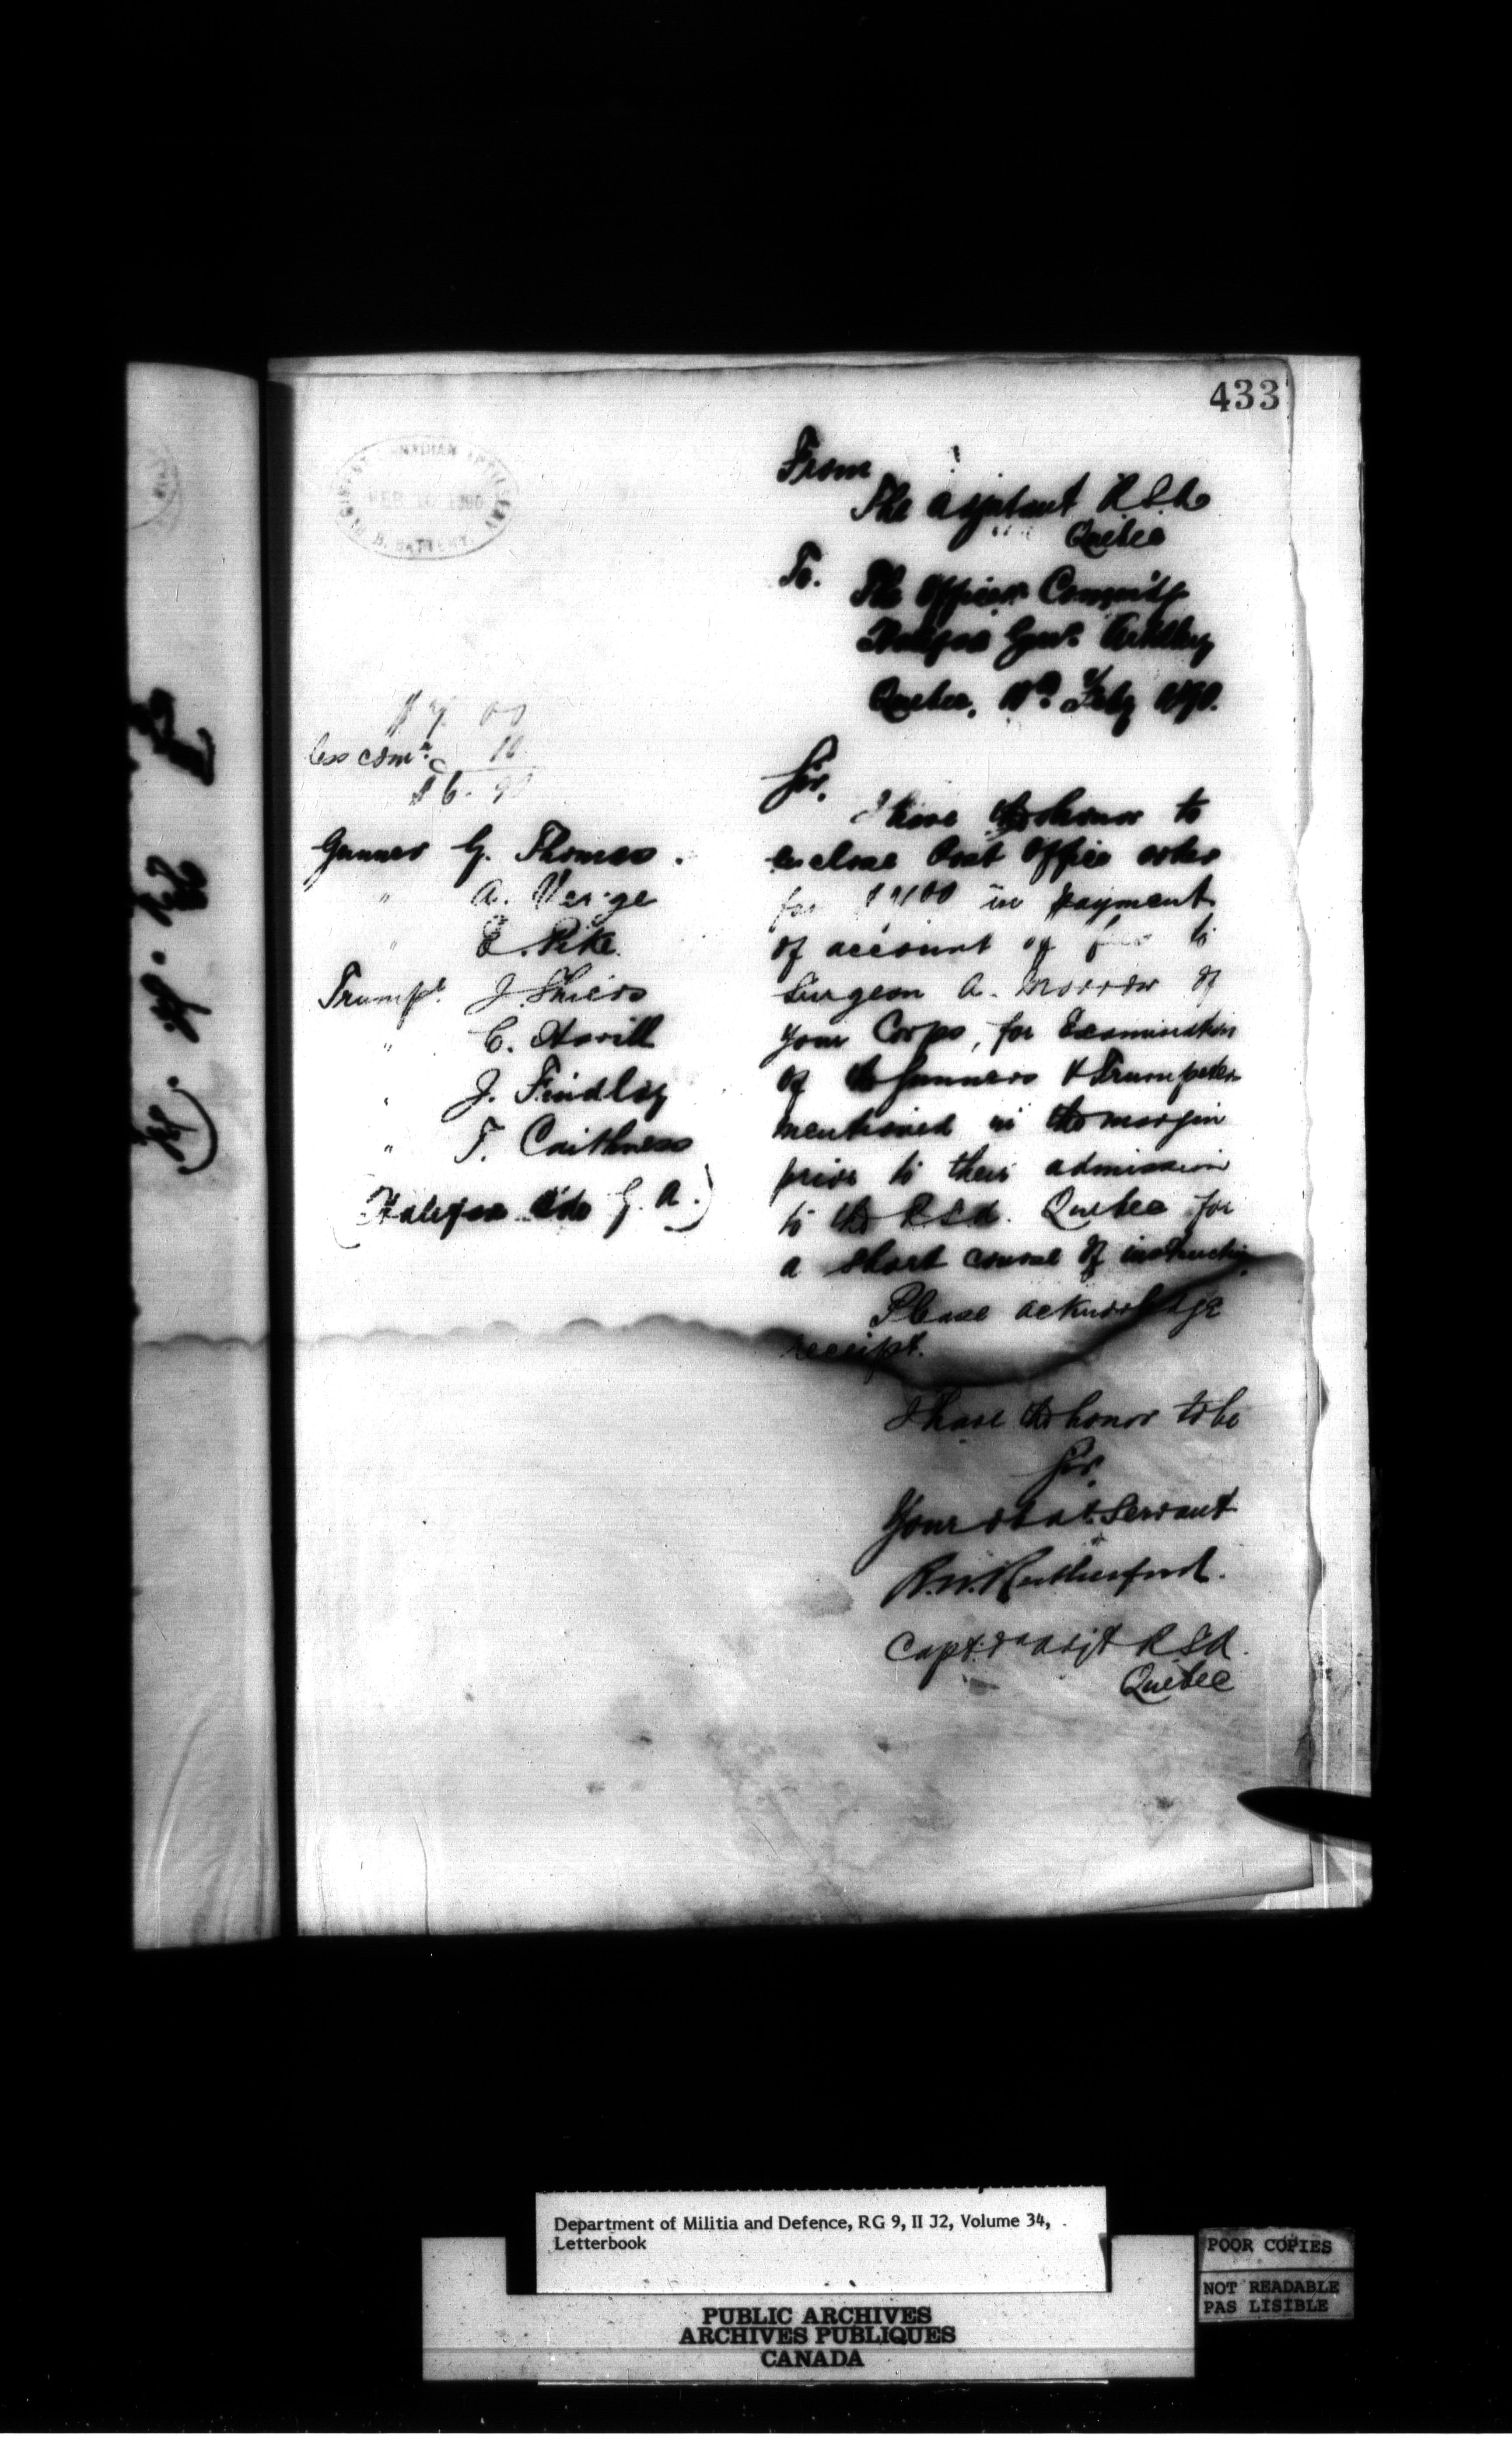 433
REGIMENT CANADIAN ARTILLERY
FEB 10 1890
B. BATTERY
From
The Adjutant R.S.A
Quebec
To. The Officer Commdg
Halifax Garn. Artillery
Quebec, Feby 1890.
$7. 00
less comn. 10
$6. 90
Gunner G. Thomas.
" A. Verge
" E. Pike.
Trumpr. J. Shiers
" C. Horill
" J. Findlay
" T. Caithness
(Halifax G. A.)
Sir,
I have the honor to
enclose Post Office order
for in payment
of account of fees to
Surgeon A. Morrow of
your Corps, for Examination
of the Gunners & Trumpeters
mentioned in the margin
prior to their admission
to the R.S.A. Quebec for
a short course of instruction
Please acknowledge
receipt.
I have the honor to be
Sir,
Your obdt. Servant
R.W. Rutherford.
Capt. & Adjt R S A.
Quebec
Department of Militia and Defence, RG 9, II J2, Volume 34,
Letterbook
PUBLIC ARCHIVES
ARCHIVES PUBLIQUES
CANADA
POOR COPIES
NOT READABLE
PAS LISIBLE